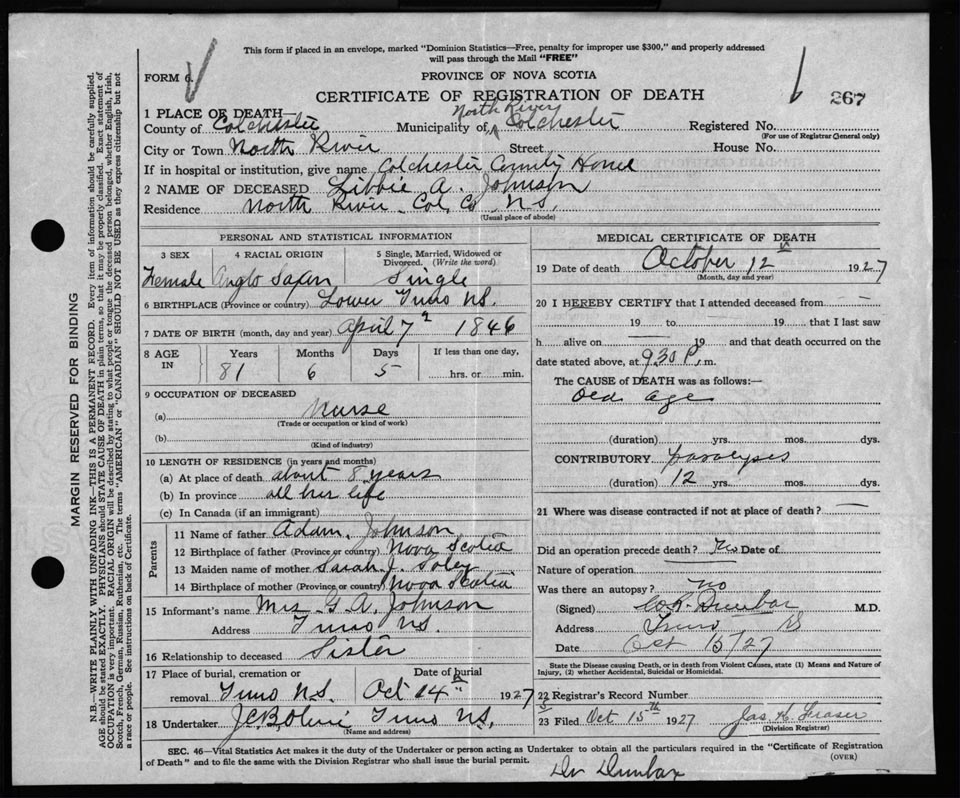 This form if placed in an envelope, marked "Dominion Statistics—Free, penalty for improper use $300," and properly addressed
will pass through the Mail "FREE"
FORM 6.
PROVINCE OF NOVA SCOTIA
CERTIFICATE OF REGISTRATION OF DEATH
267
1 PLACE OF DEATH
North River
County of Colchester Municipality of Colchester Registered No.
(For use of Registrar General only)
City or Town North River Street House No.
If in hospital or institution, give name Colchester County Home
2 NAME OF DECEASED Libbie A. Johnson
Residence North River Col. Co. N.S.
(Usual place of abode)
PERSONAL AND STATISTICAL INFORMATION
3 SEX 4 RACIAL ORIGIN 5 Single, Married, Widowed or Divorced. (Write the word)
Female Anglo Saxon Single
6 BIRTHPLACE (Province or country) Lower Truro N.S.
7 DATE OF BIRTH (month, day and year) April 7 1846
8 AGE IN Years Months Days If less than one day,
81 6 5 hrs. or min.
9 OCCUPATION OF DECEASED
(a) Nurse
(Trade or occupation or kind of work)
(b)
(Kind of industry)
10 LENGTH OF RESIDENCE (in years and months)
(a) At place of death about 8 years
(b) In province all her life
(c) In Canada (if an immigrant)
Parents
11 Name of father Adam Johnson
12 Birthplace of father (Province or country) Nova Scotia
13 Maiden name of mother Sarah J.
14 Birthplace of mother (Province or country) Nova Scotia
15 Informant's name Mrs. G. A. Johnson
Address Truro N.S.
16 Relationship to deceased Sister
17 Place of burial, cremation or Date of Burial
removal Truro N.S. Oct 14" 1927
18 Undertaker Truro N.S.
(Name and address)
MEDICAL CERTIFICATE OF DEATH
19 Date of death October 12th 1927
(Month, day and year)
20 I HEREBY CERTIFY that I attended deceased from —
19 to 19 that I last saw
h alive on 19 and that death occurred on the
date stated above, at 9.30 P. m.
The CAUSE of DEATH was as follows:—
Old Age
(duration) yrs. mos. dys.
CONTRIBUTORY Paralysis
(duration) 12 yrs. mos. dys.
21 Where was disease contracted if not at place of death? —
Did an operation precede death? No Date of
Nature of operation
Was there an autopsy? No
(Signed) Dunbar M.D.
Address Truro
Date Oct 15/27
State the Disease causing Death, or in death from Violent Causes, state (1) Means and Nature of
Injury, (2) whether Accidental, Suicidal or Homicidal.
22 Registrar's Record Number
23 Filed Oct 15th 1927 Jas. H. Fraser
(Division Registrar)
SEC. 46—Vital Statistics Act makes it the duty of the Undertaker or person acting as Undertaker to obtain all the particulars required in the "Certificate of Registration
of Death" and to file the same with the Division Registrar who shall issue the burial permit.
(OVER)
Dr Dunbar
MARGIN RESERVED FOR BINDING
N.B.—WRITE PLAINLY WITH UNFADING INK—THIS IS A PERMANENT RECORD. Every item of information should be carefully supplied.
AGE should be stated EXACTLY. PHYSICIANS should STATE CAUSE OF DEATH in plain terms, so that it may be properly classified. Exact statement of
OCCUPATION is very important. RACIAL ORIGIN will be described by stating to what people or tongue the deceased person belonged, whether English, Irish,
Scotch, French, German, Russian, Ruthenian, etc. The terms "AMERICAN" or "CANADIAN" SHOULD NOT BE USED as they express citizenship but not
a race or people. See instructions on back of Certificate.